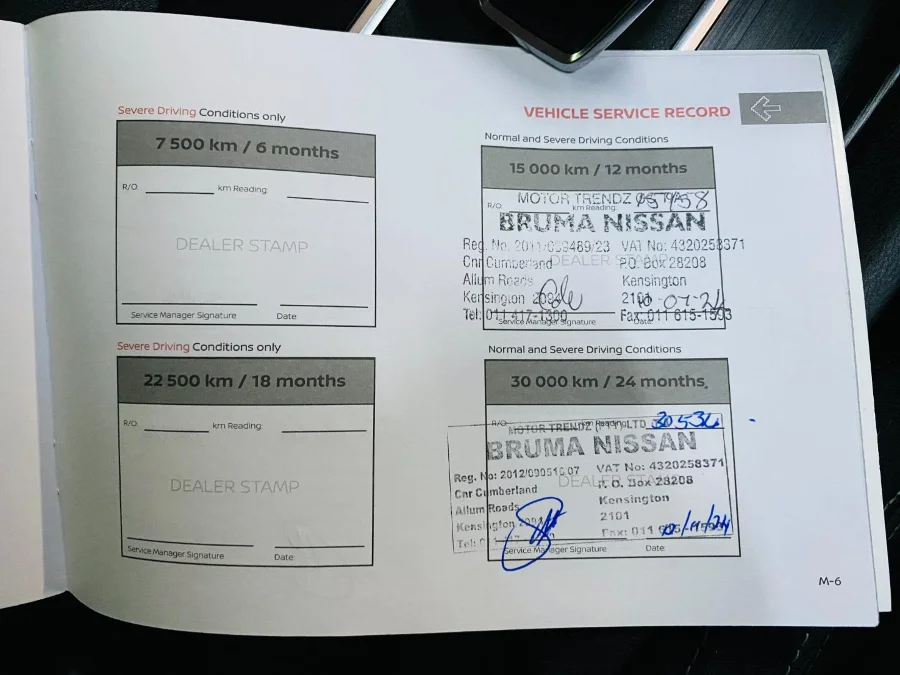 VEHICLE SERVICE RECORD
Severe Driving Conditions only
7 500 km / 6 months
R/O. km Reading:
DEALER STAMP
Service Manager Signature Date:
Normal and Severe Driving Conditions
15 000 km / 12 months
MOTOR TRENDZ
R/O. km Reading:
BRUMA NISSAN
Reg. No. VAT No: 4320258371
DEALER STAMP
Cnr Cumberland P.O. Box 28208
Allum Roads Kensington
Kensington 2101
-07-24
Tel: 011 417-1300 Fax: 011 615-1593
Service Manager Signature Date:
Severe Driving Conditions only
22 500 km / 18 months
R/O. km Reading:
DEALER STAMP
Service Manager Signature Date:
Normal and Severe Driving Conditions
30 000 km / 24 months
R/O. km Reading:
MOTOR TRENDZ LTD 30534
BRUMA NISSAN
Reg. No: VAT No: 4320258371
DEALER STAMP
Cnr Cumberland P. O. Box 28208
Allum Roads Kensington
Kensington 2101
Tel: 011 Fax: 011
/11/24
Service Manager Signature Date:
M-6